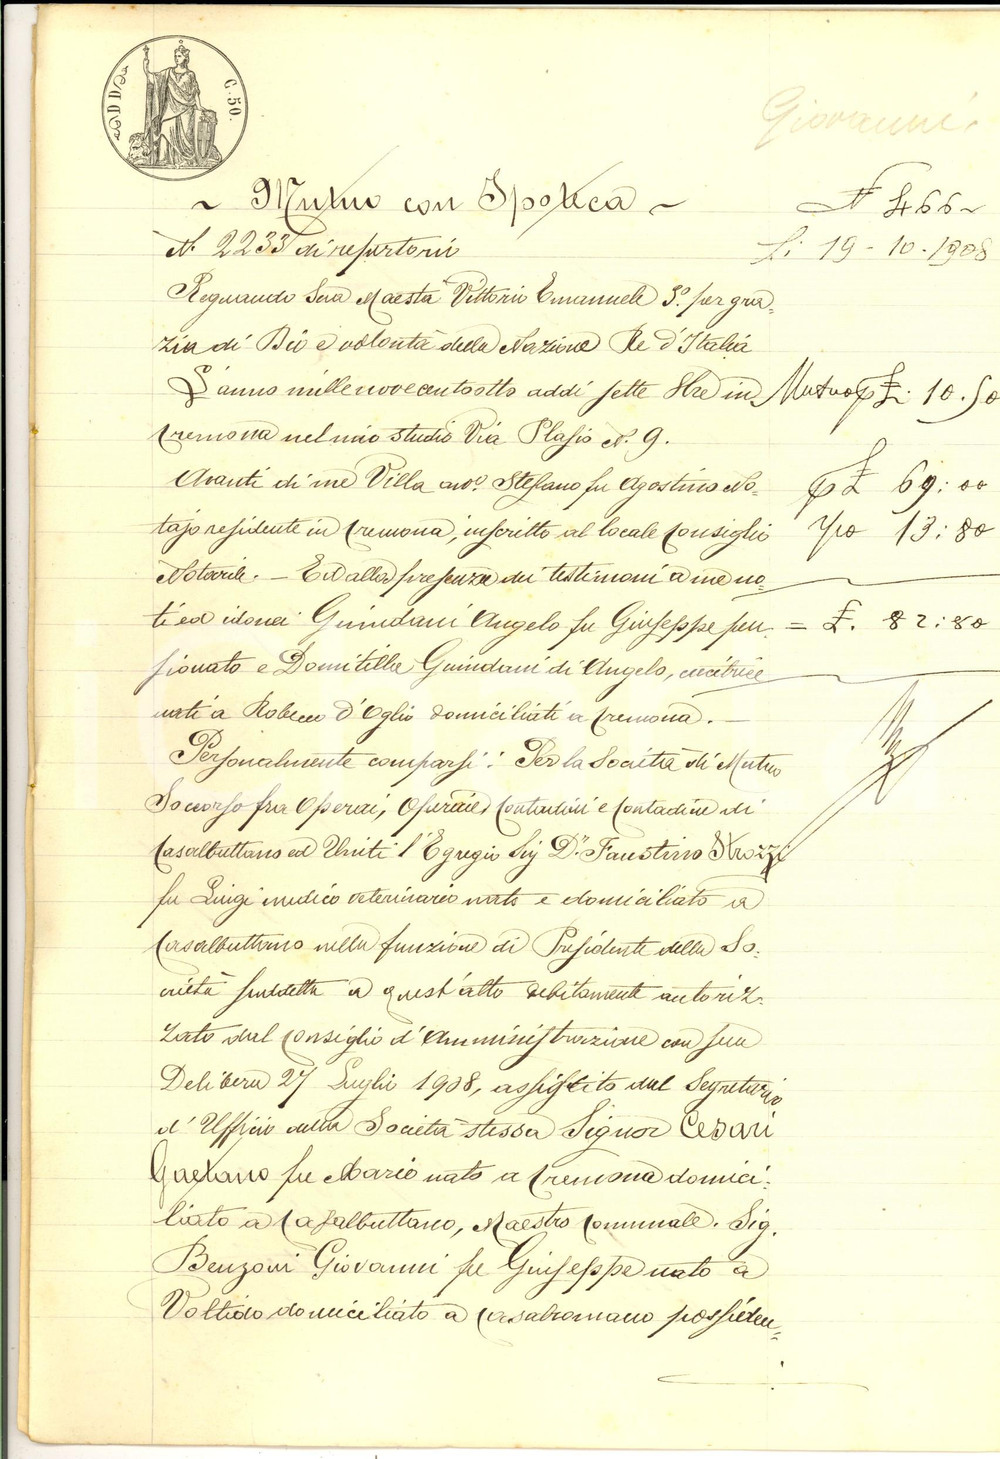 C. 50.
Giovanni.
~ Mutuo con Ipoteca ~
N. 466~
N. 2233 di repertorii
Li 19-10-1908
Regnando Sua Maestà Vittorio Emanuele 3.º per gra-
zia di Dio e volontà della Nazione Re d'Italia
L'anno millenovecentootto addì sette 8bre in
Mutuo £: 10.50
Cremona nel mio studio Via Plasio N. 9.
Avanti di me Villa avv.º Stefano fu Agostino No-
£ 69:00
tajo residente in Cremona, inscritto al locale Consiglio
7/10 13:80
Notarile. - Ed alla presenza dei testimoni a me no-
ti ed idonei Guindani Angelo fu Giuseppe pen-
= £. 82:80
sionato e Domitilla Guindani di Angelo, cucitrice
nati a Robecco d'Oglio domiciliati a Cremona. -
Personalmente comparsi: Per la Società di Mutuo
Soccorso fra Operai, Operaie, Contadini e Contadine di
Casalbuttano ed Uniti l'Egregio Sig D.r Faustino Strozzi
fu Luigi medico veterinario nato e domiciliato a
Casalbuttano nella funzione di Presidente della So-
cietà suddetta a quest'atto debitamente autoriz-
zato dal Consiglio d'Amministrazione con sua
Delibera 27 Luglio 1908, assistito dal Segretario
d'Ufficio della Società stessa Signor Cesari
Gaetano fu Mario nato a Cremona domici-
liato a Casalbuttano, Maestro Comunale. Sig.
Benzoni Giovanni fu Giuseppe nato a
Voltido domiciliato a Casalromano possiden-